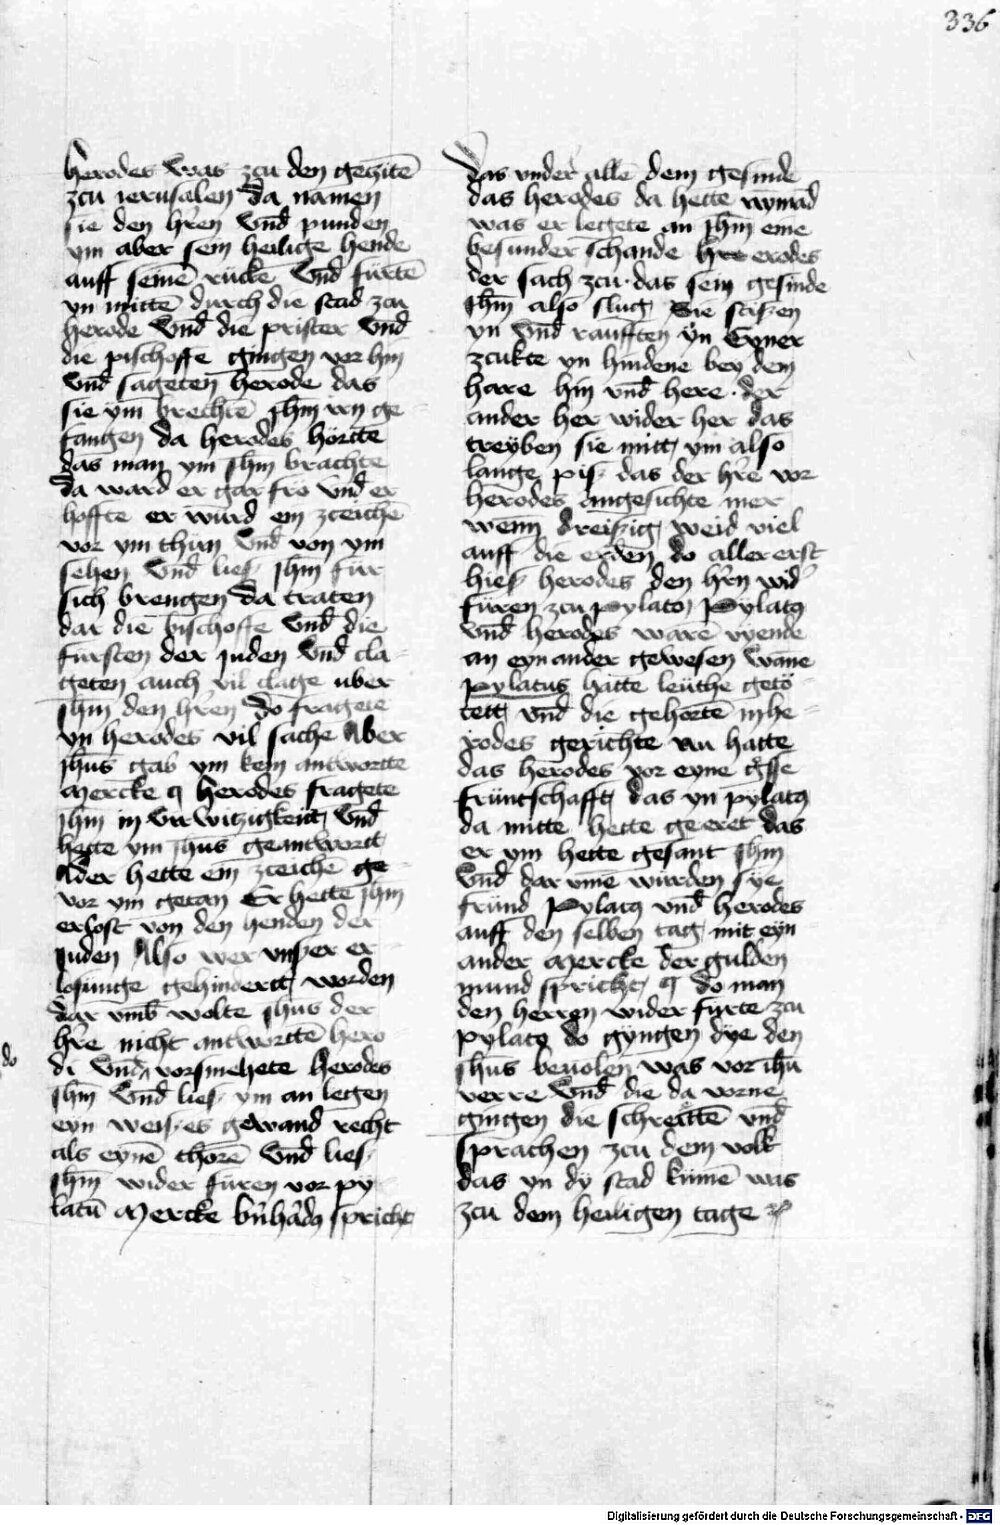 336
herodes was zcu den geczitē
zcu ierusalen da namen
sie den hr̄en vnd̄ punden
ym aber sein heilige hende
auff seinē rücke vnd̄ fürtē
yn mittē durch die stad zcu
herode vnd̄ die prister vnd̄
die pischoffe gingen vor hin
vnd̄ sageten herode das
sie ym brechtē jhm̄ ge
fangen da herodes hörtte
das man ym jhm̄ brachte
da ward er gar fro vnd̄ er
hoffte er würd ein zceichē
vor ym thün vnd̄ von ym
sehen vnd̄ lies jhm̄ für
sich brengen da traten
dar die bischoffe vnd̄ die
fursten der juden vnd̄ cla
geten auch vil clage uber
jhm̄ den hr̄en do fragete
yn herodes vil sache Aber
jhūs gab ym kein antwortte
Mercke q herodes fragete
jhm̄ in vir witzigkeitt vnd̄
hette ym jhūs geantwortt
Ader hette ein zceichē ge
vor ym getan Er hette jhm̄
erlost von den henden der
juden Also wer vnser er
losunge gehindertt worden
dar vmb wolte jhūs der
hr̄e nicht antwortte hero
do
di vnd̄ vorsmehete herodes
jhm̄ vnd̄ lies ym an legen
eyn weises gewand recht
als eynē thorē vnd̄ lies
jhm̄ wider füren vor py
latū Mercke spricht
das vnder allē dem gesinde
das herodes da hette nymād
was er legete an jhm̄ eine
besunder schande erodes
der sach zcu das sein gesinde
jhm̄ also slug Sie stisen
yn vnd̄ raufften ÿn Eyner
zcukte yn hindene bey dem
hare hin vnd̄ here der
ander her wider her das
treÿben sie mitt ym also
lange pis das der hr̄e vor
herodes angesichte mer
wenn dreisig weid viel
auff die erden do allererst
hies herodes den hr̄n wid̄
füren zcu pylato Pÿlatꝯ
vnd̄ herodes warē vyende
an eynander gewesen wāne
pylatus hatte leüthe getö
tett vnd̄ die gehortē in he
rodes gerichte nu hatte
das herodes vor eyne
früntschafft das yn pylatꝯ
da mitte hette geeret das
er ym hette gesant jhm̄
vnd̄ dar vmē wurden sÿe
fründ Pylatꝯ vnd̄ herodes
auff den selben tag mit eyn
ander Mercke der gulden
mund spricht q do man
den herren wider fürte zcu
pylatꝯ do gÿngen dÿe den
jhūs beuolen was vor ihū
verre vnd̄ die da vorne
gingen die schreittē vnd̄
sprachen zcu dem volk
das yn dÿ stad kumē was
zcu dem heiligen tage
Digitalisierung gefördert durch die Deutsche Forschungsgemeinschaft - DFG